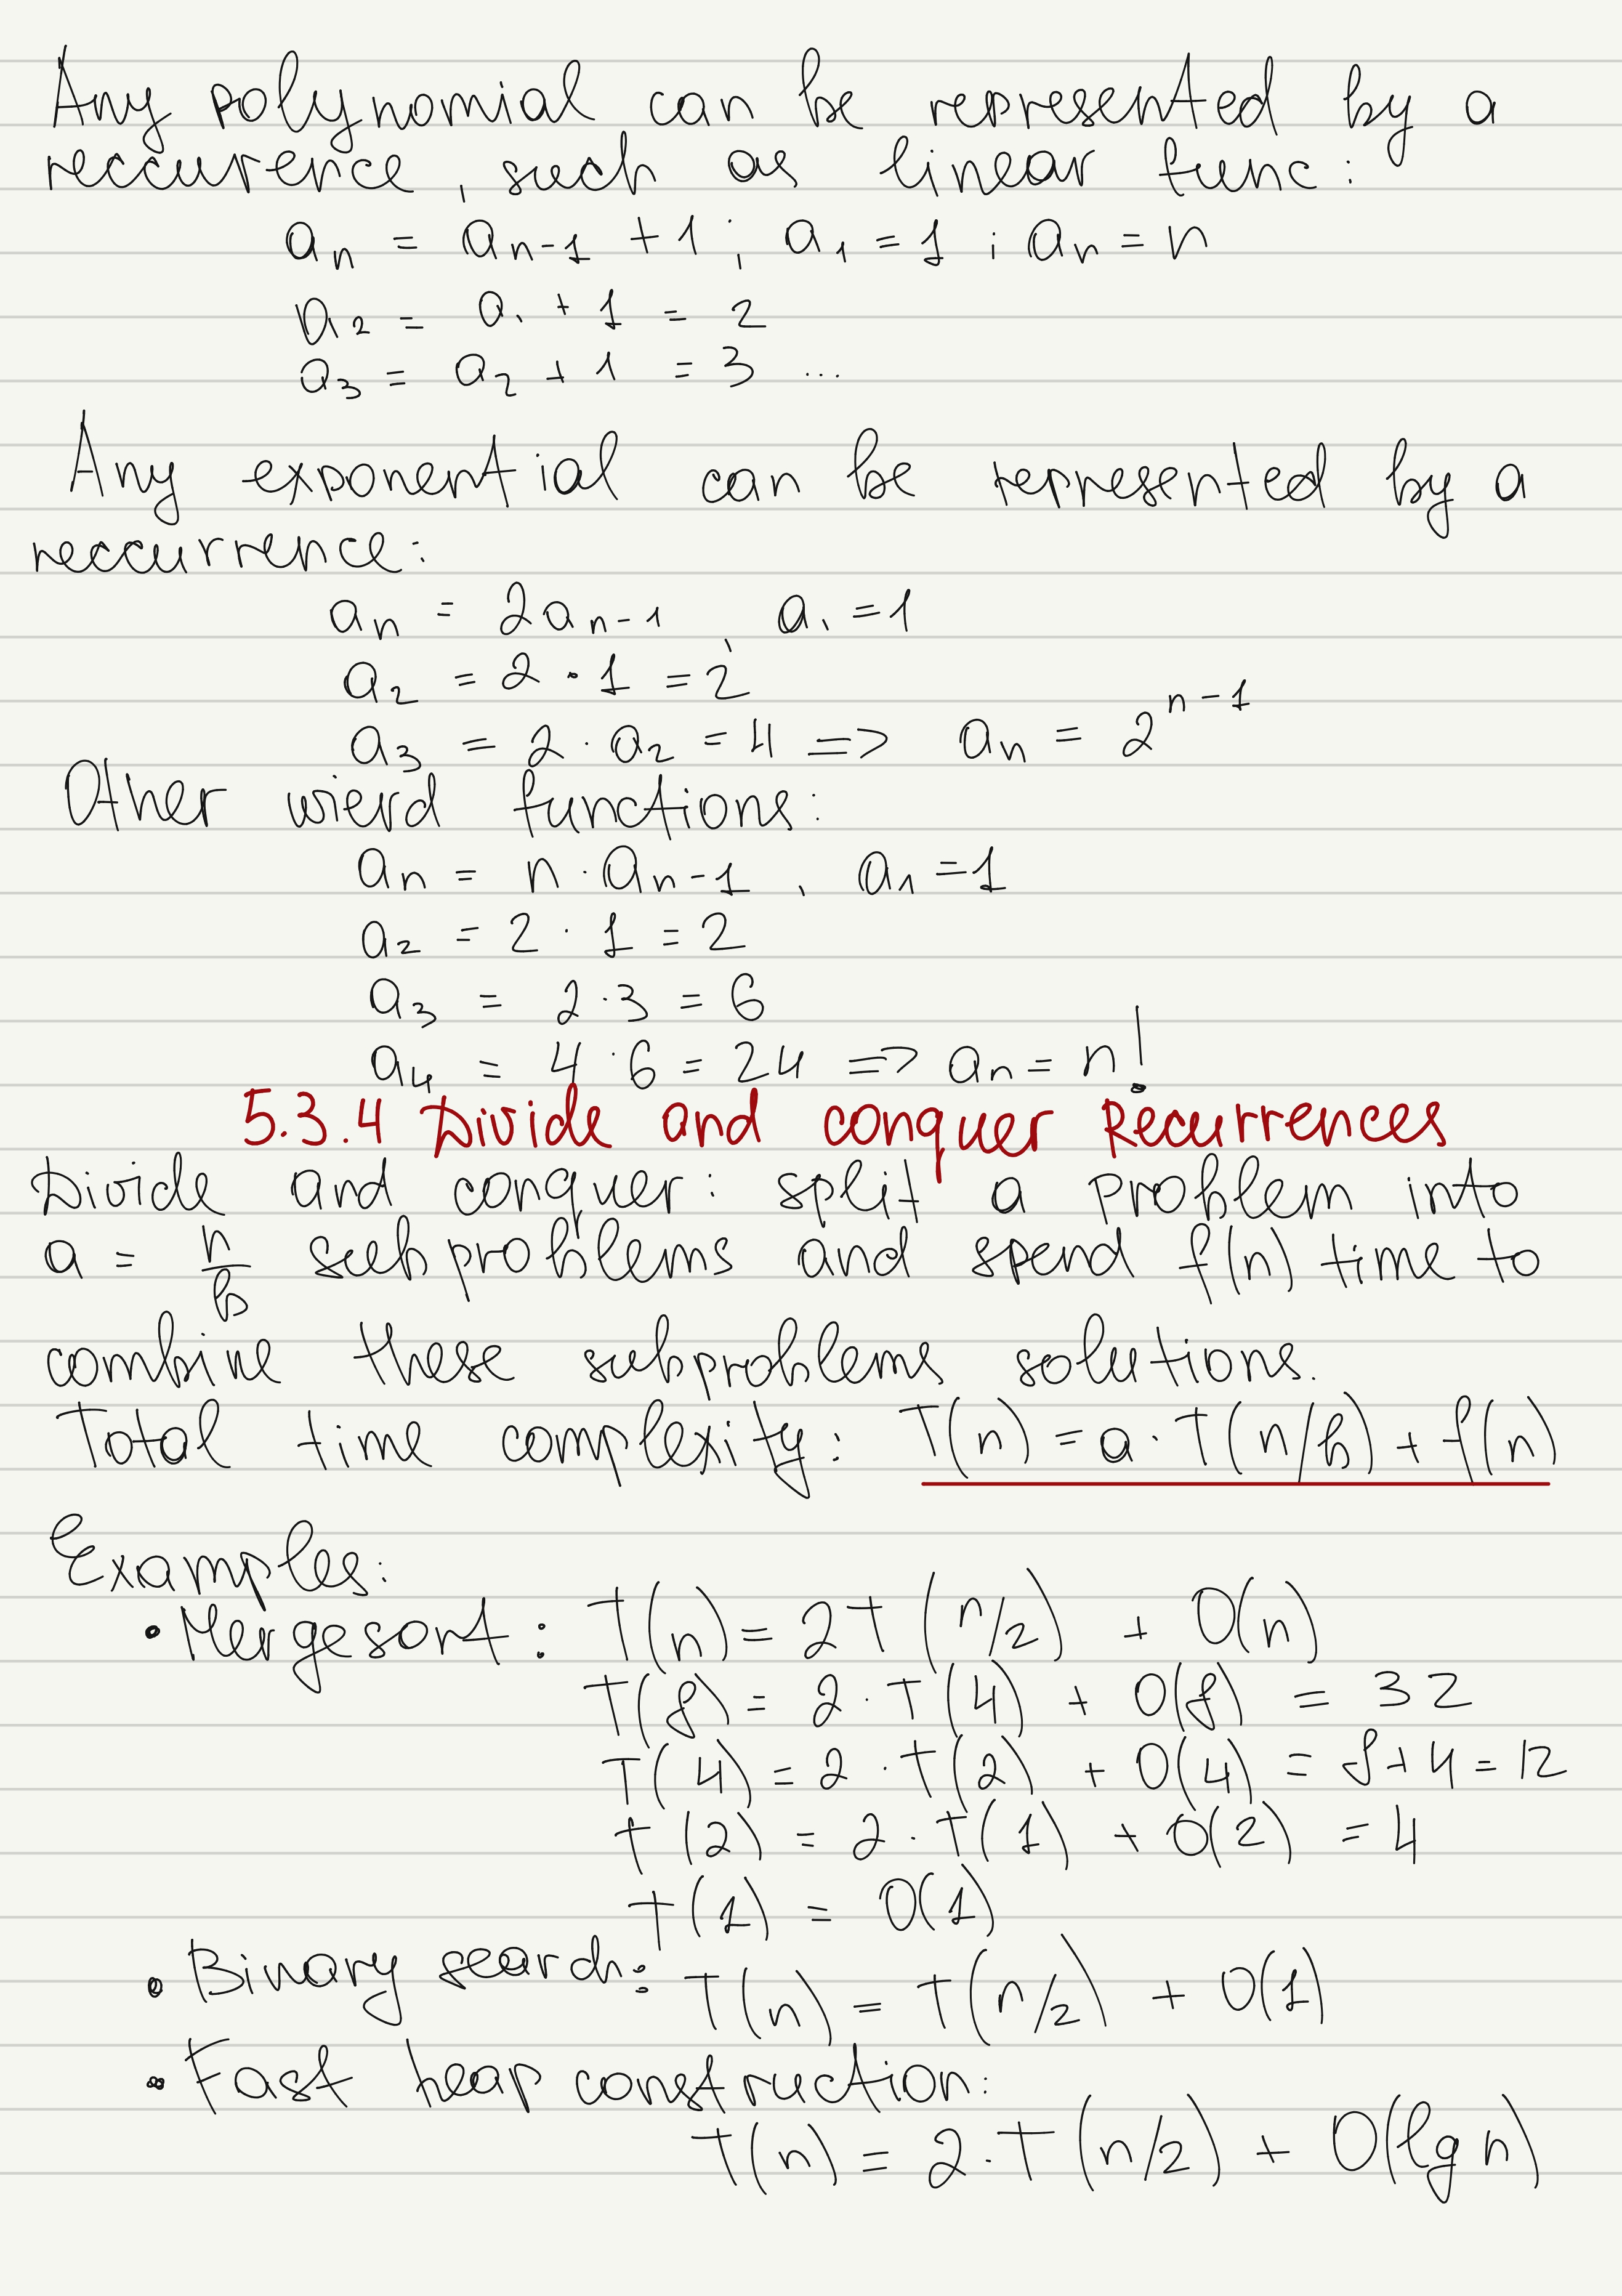 Any polynomial can be represented by a
reccurence, such as linear func:
aₙ = aₙ₋₁ + 1 ; a₁ = 1 ; aₙ = n
a₂ = a₁ + 1 = 2
a₃ = a₂ + 1 = 3 ...
Any exponential can be represented by a
reccurrence:
aₙ = 2aₙ₋₁ , a₁ = 1
a₂ = 2 · 1 = 2
a₃ = 2 · a₂ = 4 => aₙ = 2ⁿ⁻¹
Other wierd functions:
aₙ = n · aₙ₋₁ , a₁ = 1
a₂ = 2 · 1 = 2
a₃ = 2 · 3 = 6
a₄ = 4 · 6 = 24 => aₙ = n!
5.3.4 Divide and conquer Recurrences
Divide and conquer: split a problem into
a = n/b subproblems and spend f(n) time to
combine these subproblems solutions.
Total time complexity: T(n) = a · T(n/b) + f(n)
Examples:
• Mergesort: T(n) = 2T(n/2) + O(n)
T(8) = 2 · T(4) + O(8) = 32
T(4) = 2 · T(2) + O(4) = 8 + 4 = 12
T(2) = 2 · T(1) + O(2) = 4
T(1) = O(1)
• Binary search: T(n) = T(n/2) + O(1)
• Fast heap construction:
T(n) = 2 · T(n/2) + O(lg n)